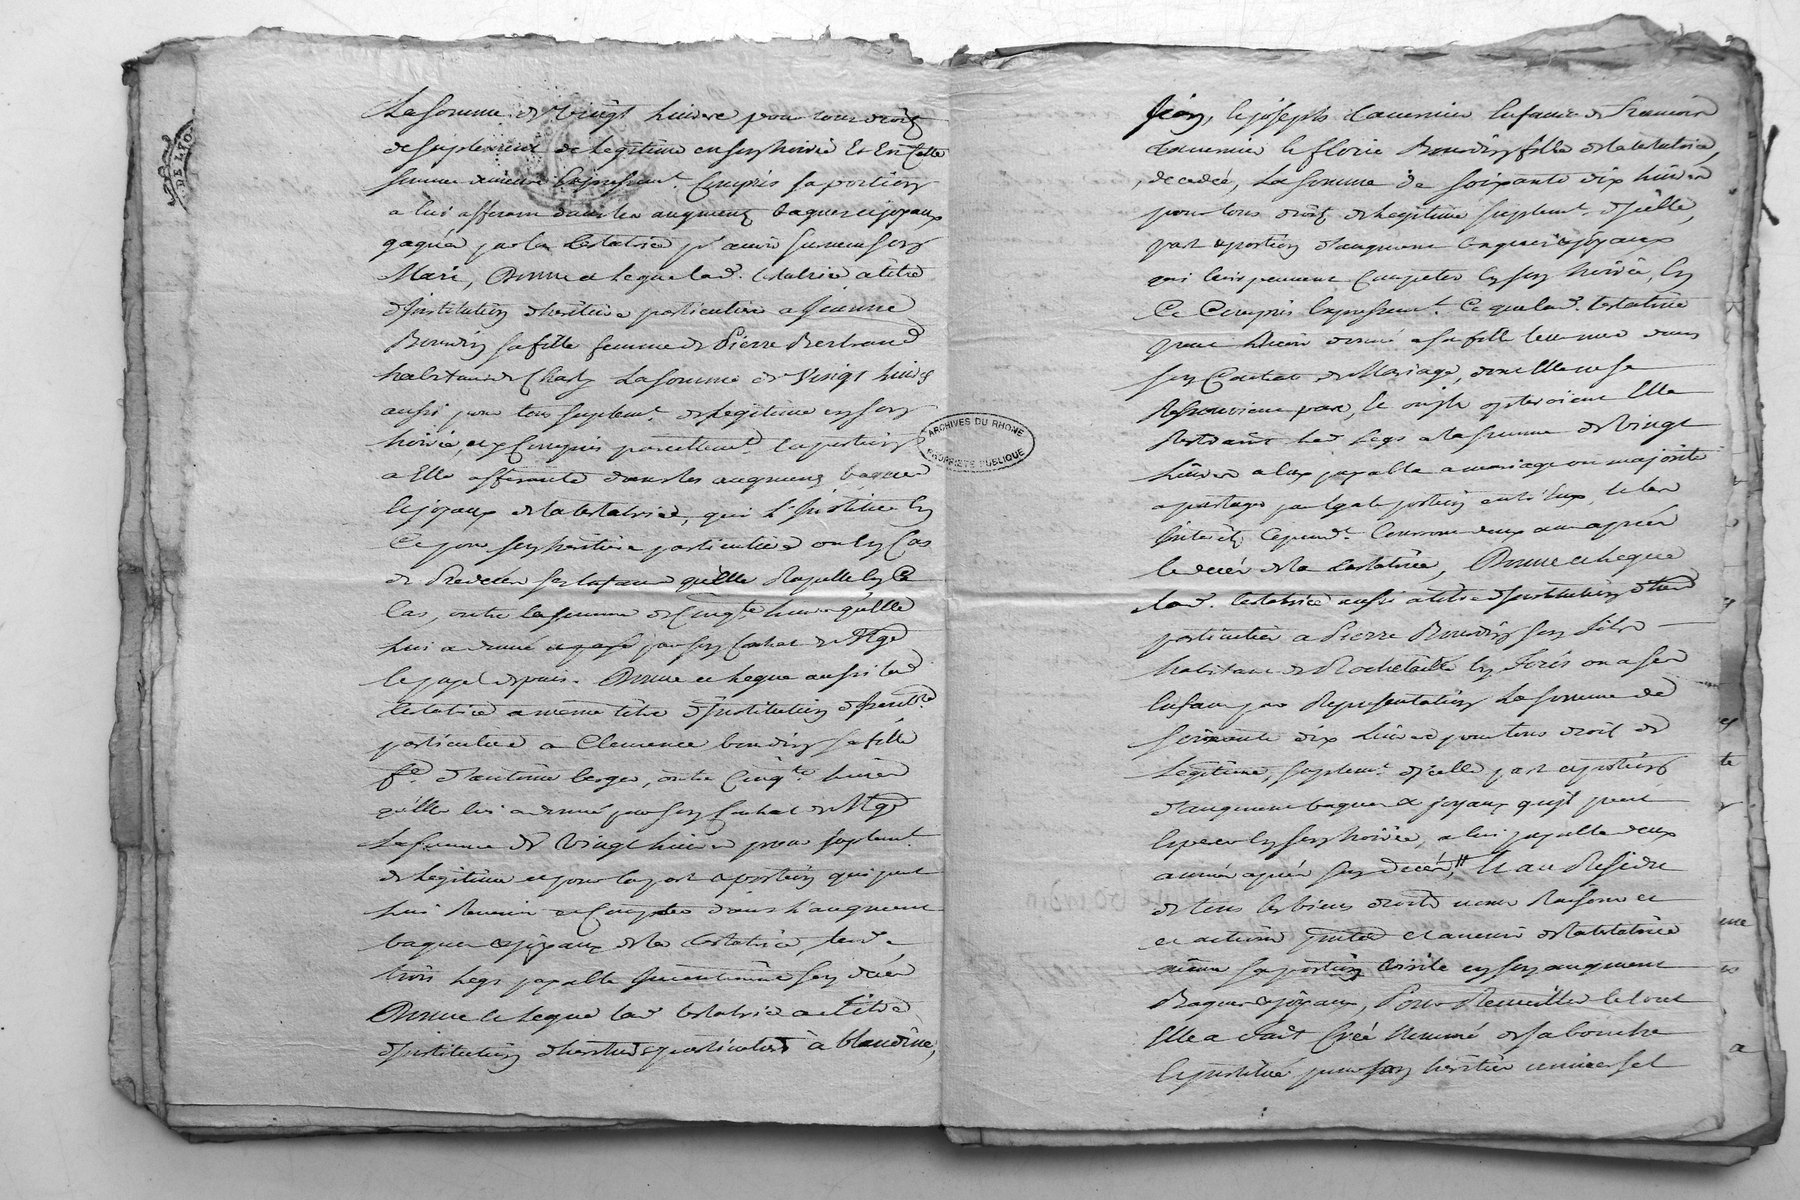 La somme de vingt livres pour tous droits
de suplement de legitime en son hoirie et en cette
somme demeure expressemt. Compris sa portion
a lui afferante dans les augment bagues et joyaux
gagnés par la testatrice pr. avoir survecu son
Mari, Donne et legue lad. testatrice a titre
d'Institution d'heritiere particuliere a Jeanne
Bourdin sa fille femme de Pierre Bertrand
habitant de Charly La somme de Vingt livres
aussi pour tout suplemt. de legitime en son
hoirie, et y Compris pareillemt. la portion
a Elle afferante dans les augment bagues
et joyaux de la testatrice, qui L'Institue en
Ce pour son heritiere particuliere ou en Cas
de Predecès ses enfans qu'elle Rapelle en Ce
Cas, outre la somme de Cinqte. livres qu'elle
lui a donné par son Contrat de Mge
et payé depuis. Donne et legue aussi lad.
testatrice a même titre d'Institution d'heritre.
particuliere a Clemence bourdin sa fille
fe. d'antoine berger, outre Cinqte. livres
qu'elle lui a donné par son Contrat de Mge
La somme de Vingt livres pour suplemt.
de legitime et pour la part et portion qui peut
lui Revenir et Compter dans L'augment
bagues et joyaux de la testatrice, lesd.
trois legs payable Incontinent son décès
Donne et legue lad. testatrice a titre
d'Institution d'heritiers particuliers à blandine,
ARCHIVES DU RHONE
PROPRIETE PUBLIQUE
DE LYON
et joseph tavernier Enfans de francois
tavernier et florie Bourdin fille de la testatrice,
decedée, La somme de soixante dix livres
pour tous droits de legitime suplemt. d'icelle,
part et portion d'augment bagues et joyaux
qui leurs peuvent Competer en son hoirie, En
Ce Compris Expressemt. Ce que lad. testatrice
peut avoir donné a sa fille leur mere dans
son Contrat de Mariage, dont Elle ne se
Ressouvient pas,
Restraint led. Legs a la somme de Vingt
livres a Eux payable a mariage ou majorité
a partager par Egale portion entr'Eux,
le decès de la testatrice, Donne et legue
lad. testatrice aussi a titre d'Institution d'herer.
particulier a Pierre Bourdin son fils
habitant de Rochetaillé en forés ou a ses
Enfans par Representation La somme de
soixante dix livres pour tous droit de
legitime, suplemt. d'icelle part et portion
d'augment bagues et joyaux qu'il peut
Esperer en son hoirie, a lui payable deux
année après son decès, Et au Residu
de tous les biens droits noms Raisons et
et actions present et avenir de la testatrice
même sa portion virile en son augment
Bagues et joyaux, Pour Recueillir le tout
Elle a fait Créé Nommé de sa bouche
et institué pour son heritier universel